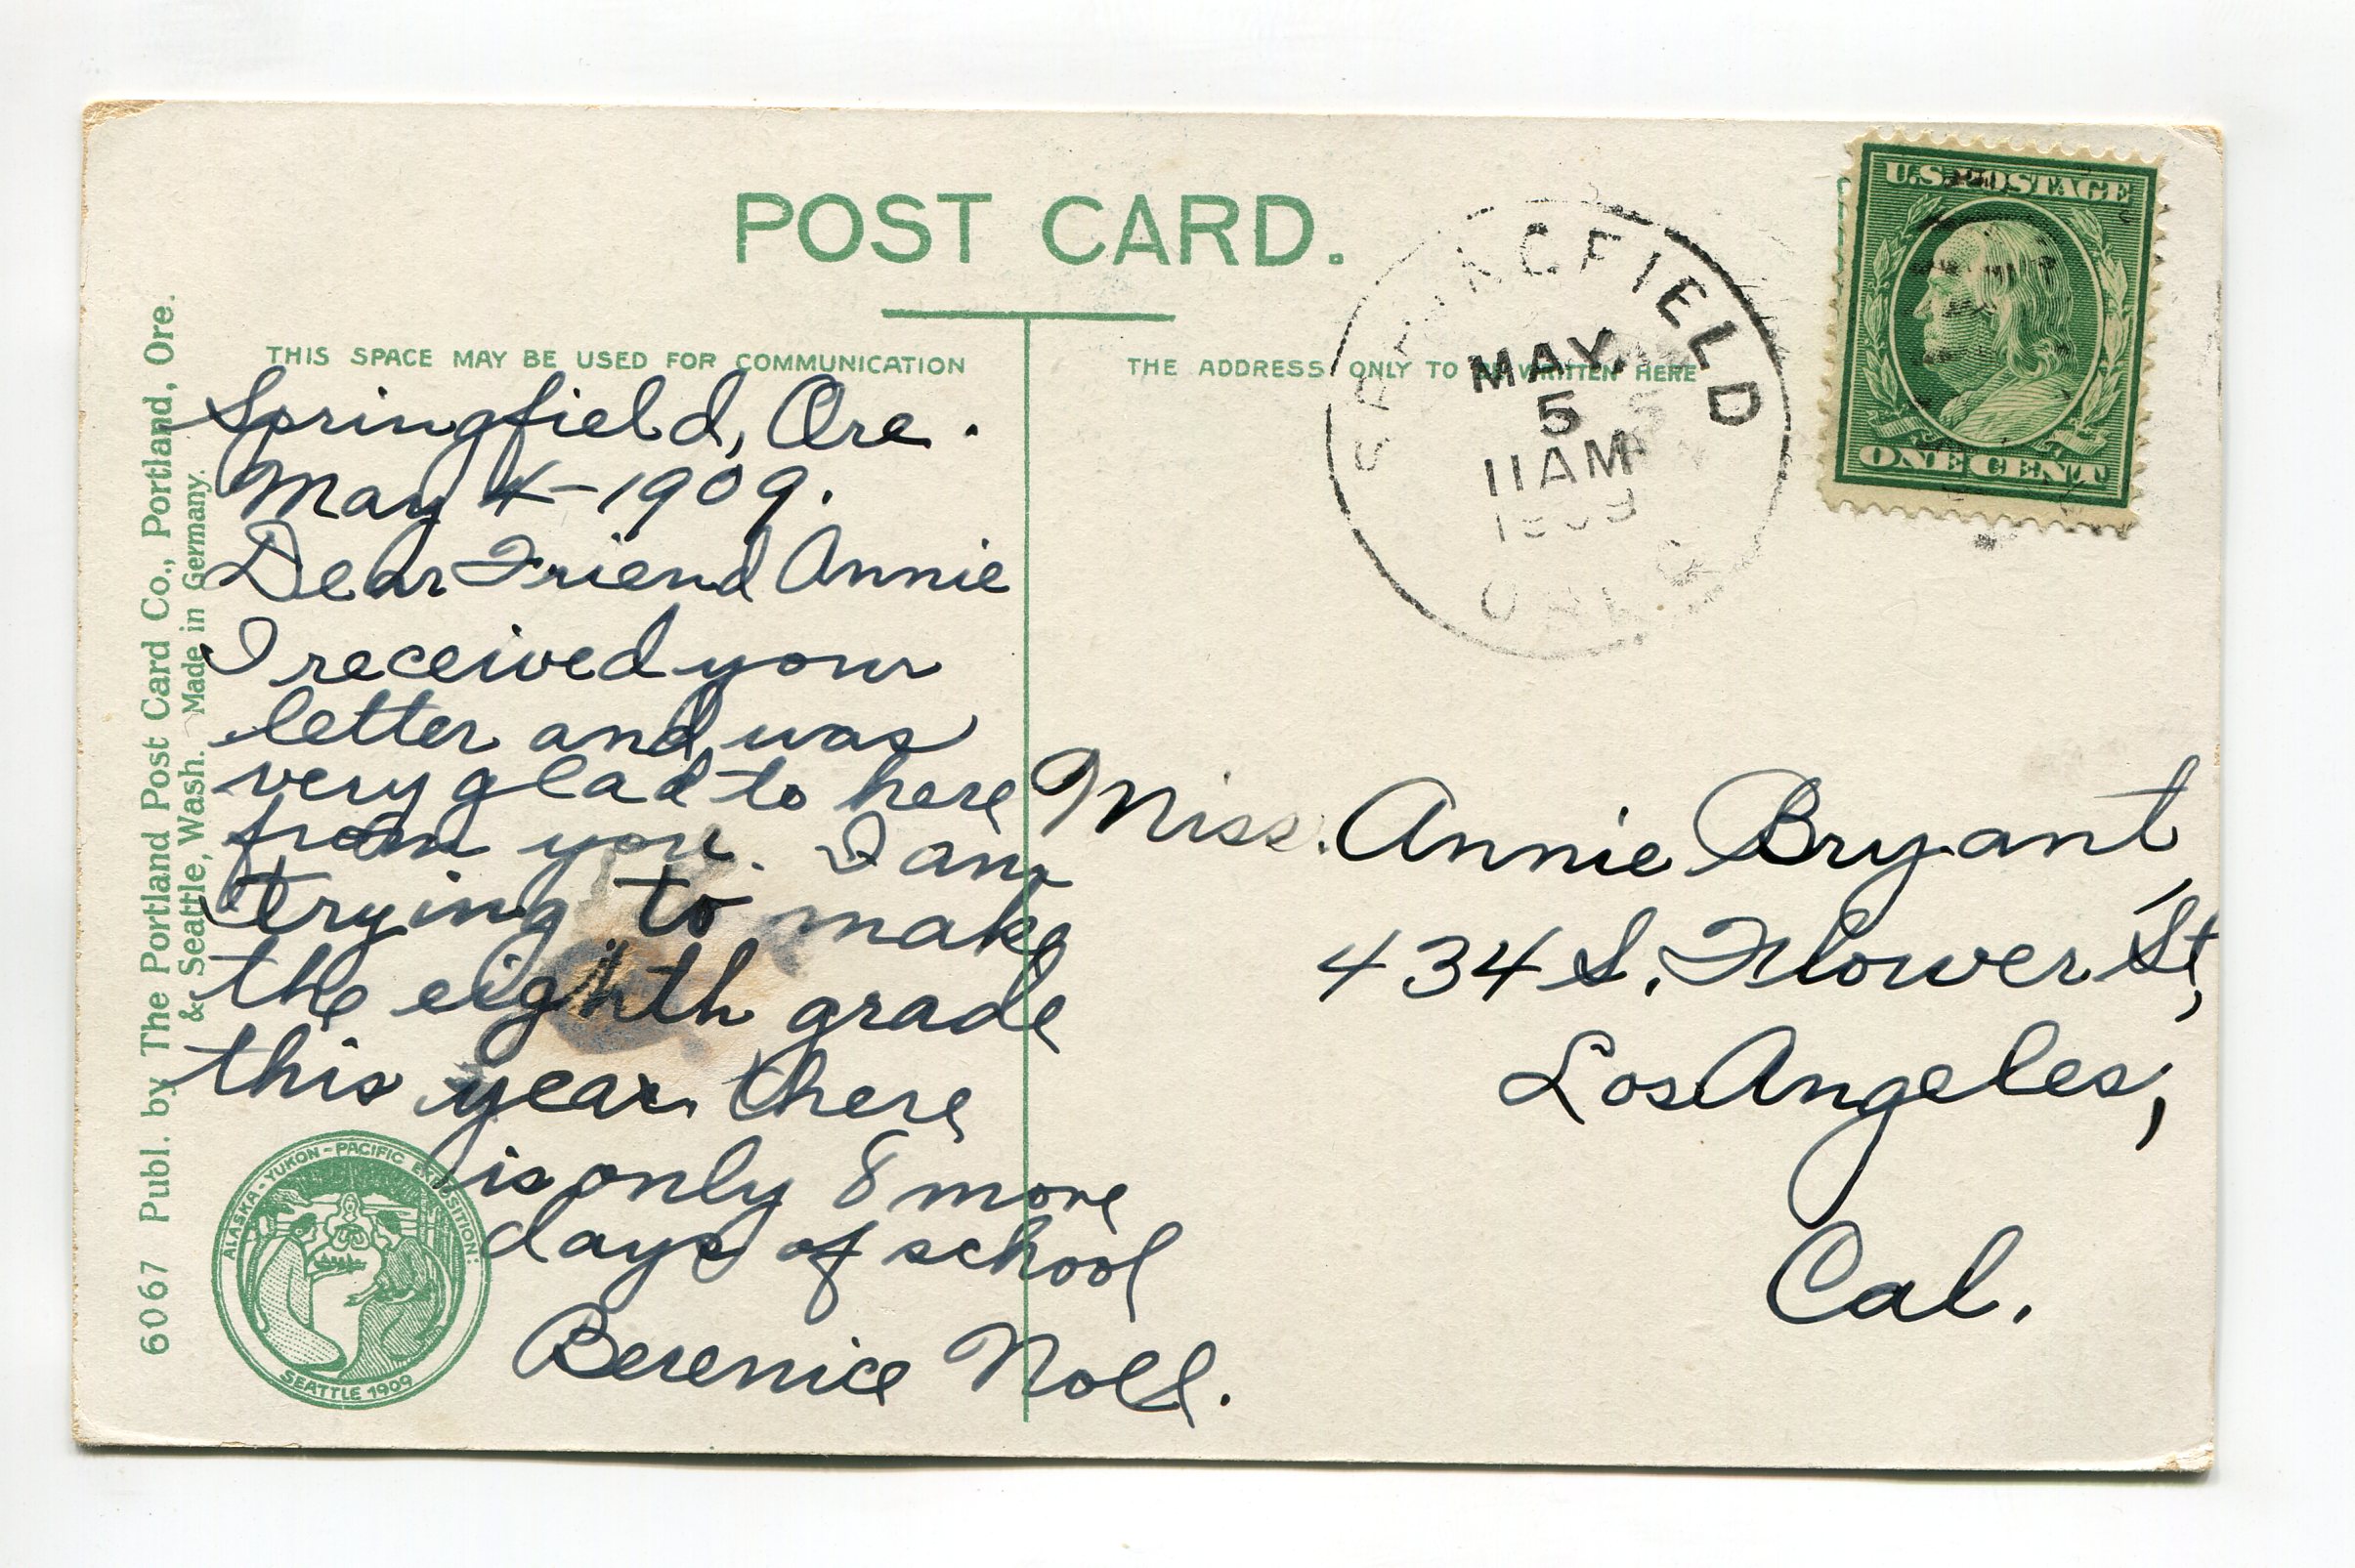 POST CARD.
THIS SPACE MAY BE USED FOR COMMUNICATION
THE ADDRESS ONLY TO BE WRITTEN HERE
Springfield, Ore.
May 4-1909.
Dear Friend Annie
I received your
letter and was
very glad to here
from you. I am
trying to make
the eighth grade
this year. there
is only 8 more
days of school
Berenice Noll.
Miss. Annie Bryant,
434 S. Flower St,
Los Angeles,
Cal.
SPRINGFIELD
MAY
5
11 AM
1909
OREG
U.S. POSTAGE
ONE CENT
6067 Publ. by The Portland Post Card Co., Portland, Ore.
& Seattle, Wash. Made in Germany.
ALASKA-YUKON-PACIFIC EXPOSITION
SEATTLE 1909